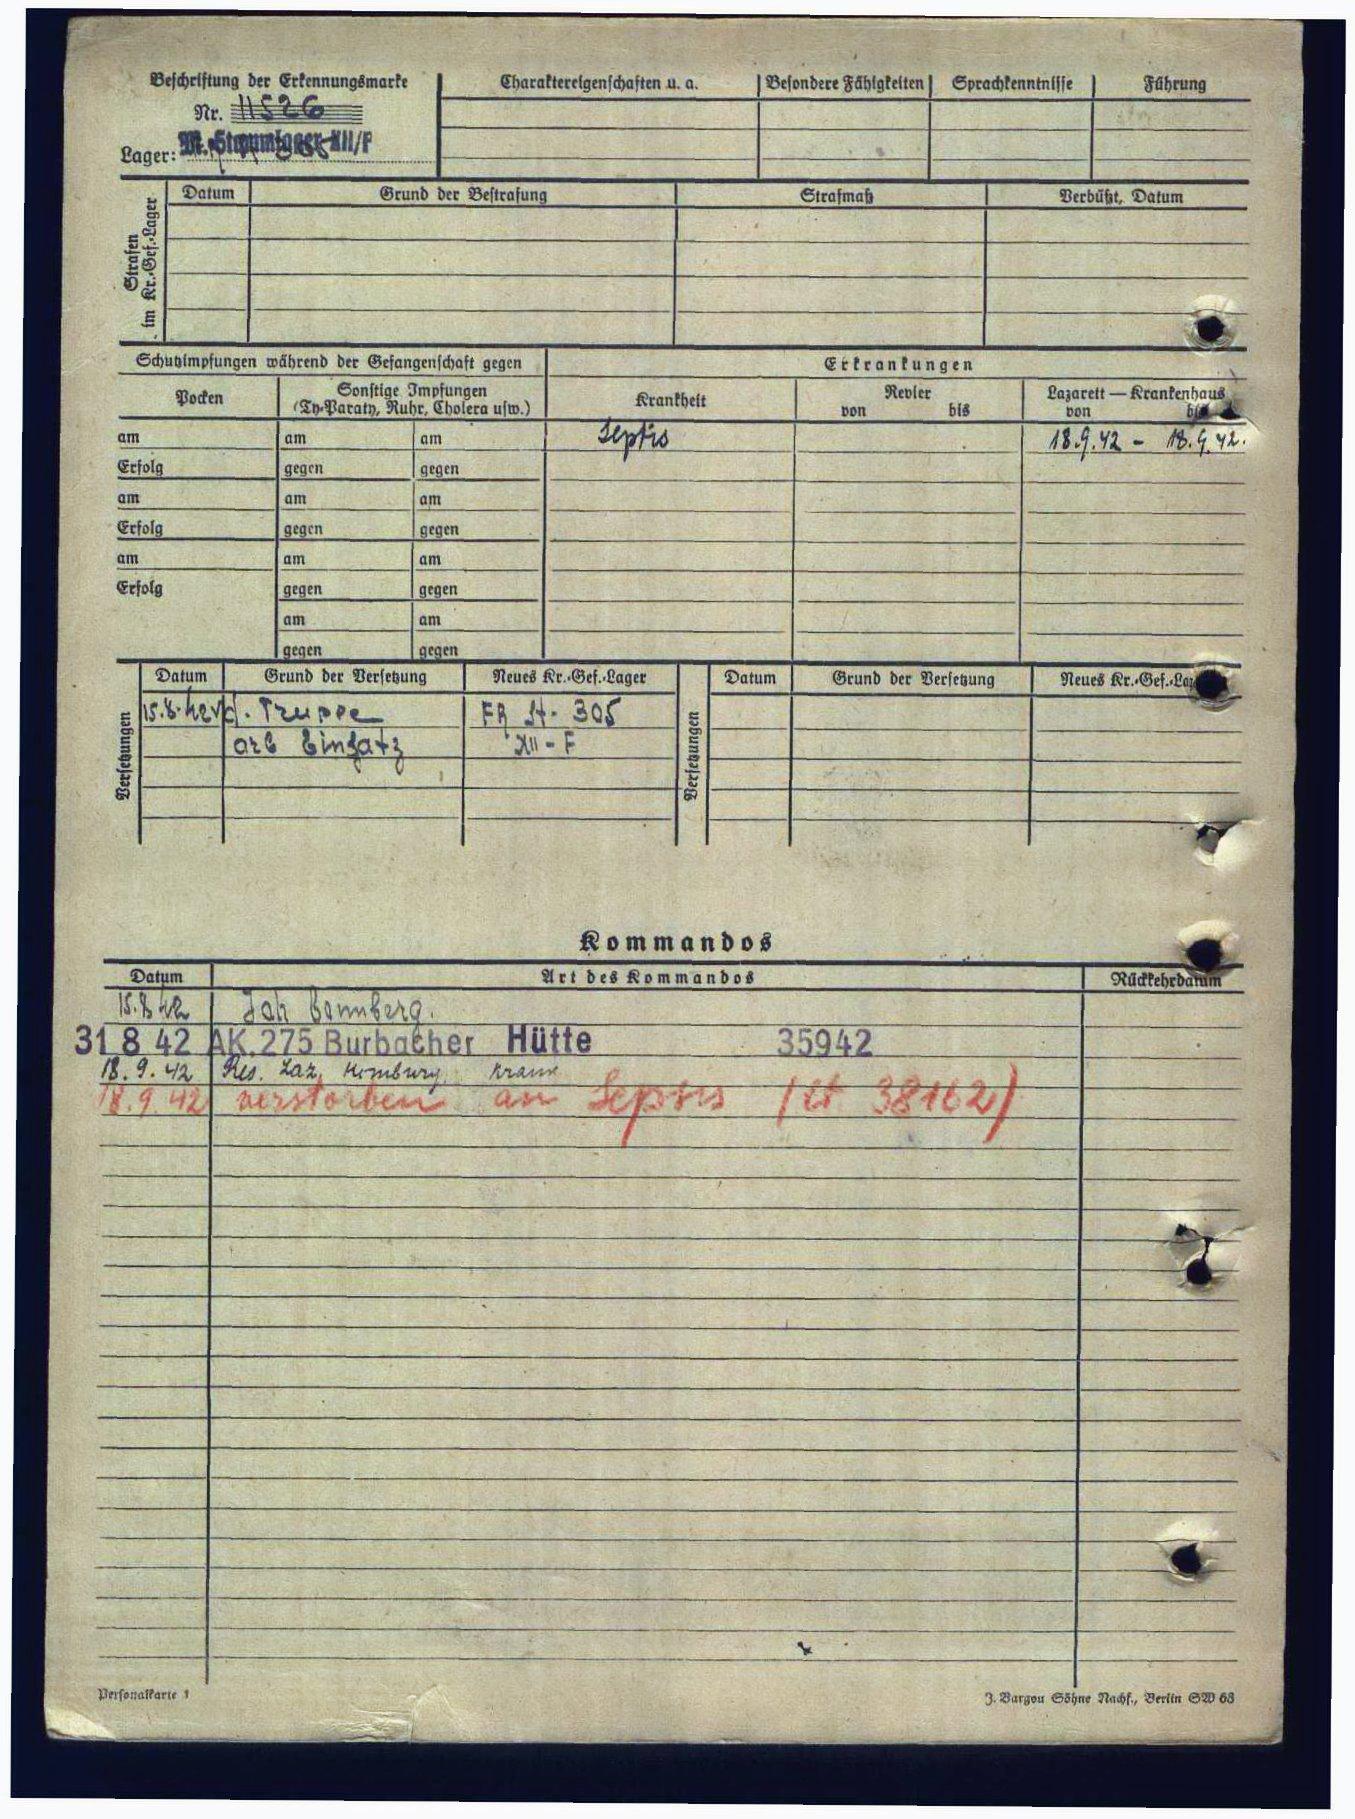 Beschriftung der Erkennungsmarke
Nr. 11526
Lager: M. Stammlager XII/F
Charaktereigenschaften u. a. Besondere Fähigkeiten Sprachkenntnisse Führung
Strafen im Kr.-Gef.-Lager
Datum Grund der Bestrafung Strafmaß Verbüßt, Datum
Schutzimpfungen während der Gefangenschaft gegen
Erkrankungen
Pocken
Sonstige Impfungen
(Ty-Paraty, Ruhr, Cholera usw.)
Krankheit
Revier
von bis
Lazarett — Krankenhaus
von bis
am am am Sepsis 18.9.42 - 18.9.42.
Erfolg gegen gegen
am am am
Erfolg gegen gegen
am am am
Erfolg gegen gegen
am am
gegen gegen
Versetzungen
Datum Grund der Versetzung Neues Kr.-Gef.-Lager
15.8.42 d. Truppe FR St. 305
arb Einsatz XII-F
Versetzungen
Datum Grund der Versetzung Neues Kr.-Gef.-Lag
Kommandos
Datum Art des Kommandos Rückkehrdatum
15.8.42
31 8 42 AK. 275 Burbacher Hütte 35942
18.9.42 Res. Laz. Homburg krank
18.9.42 verstorben an Sepsis ( 38162)
Personalkarte 1
J. Bargou Söhne Nachf., Berlin SW 68